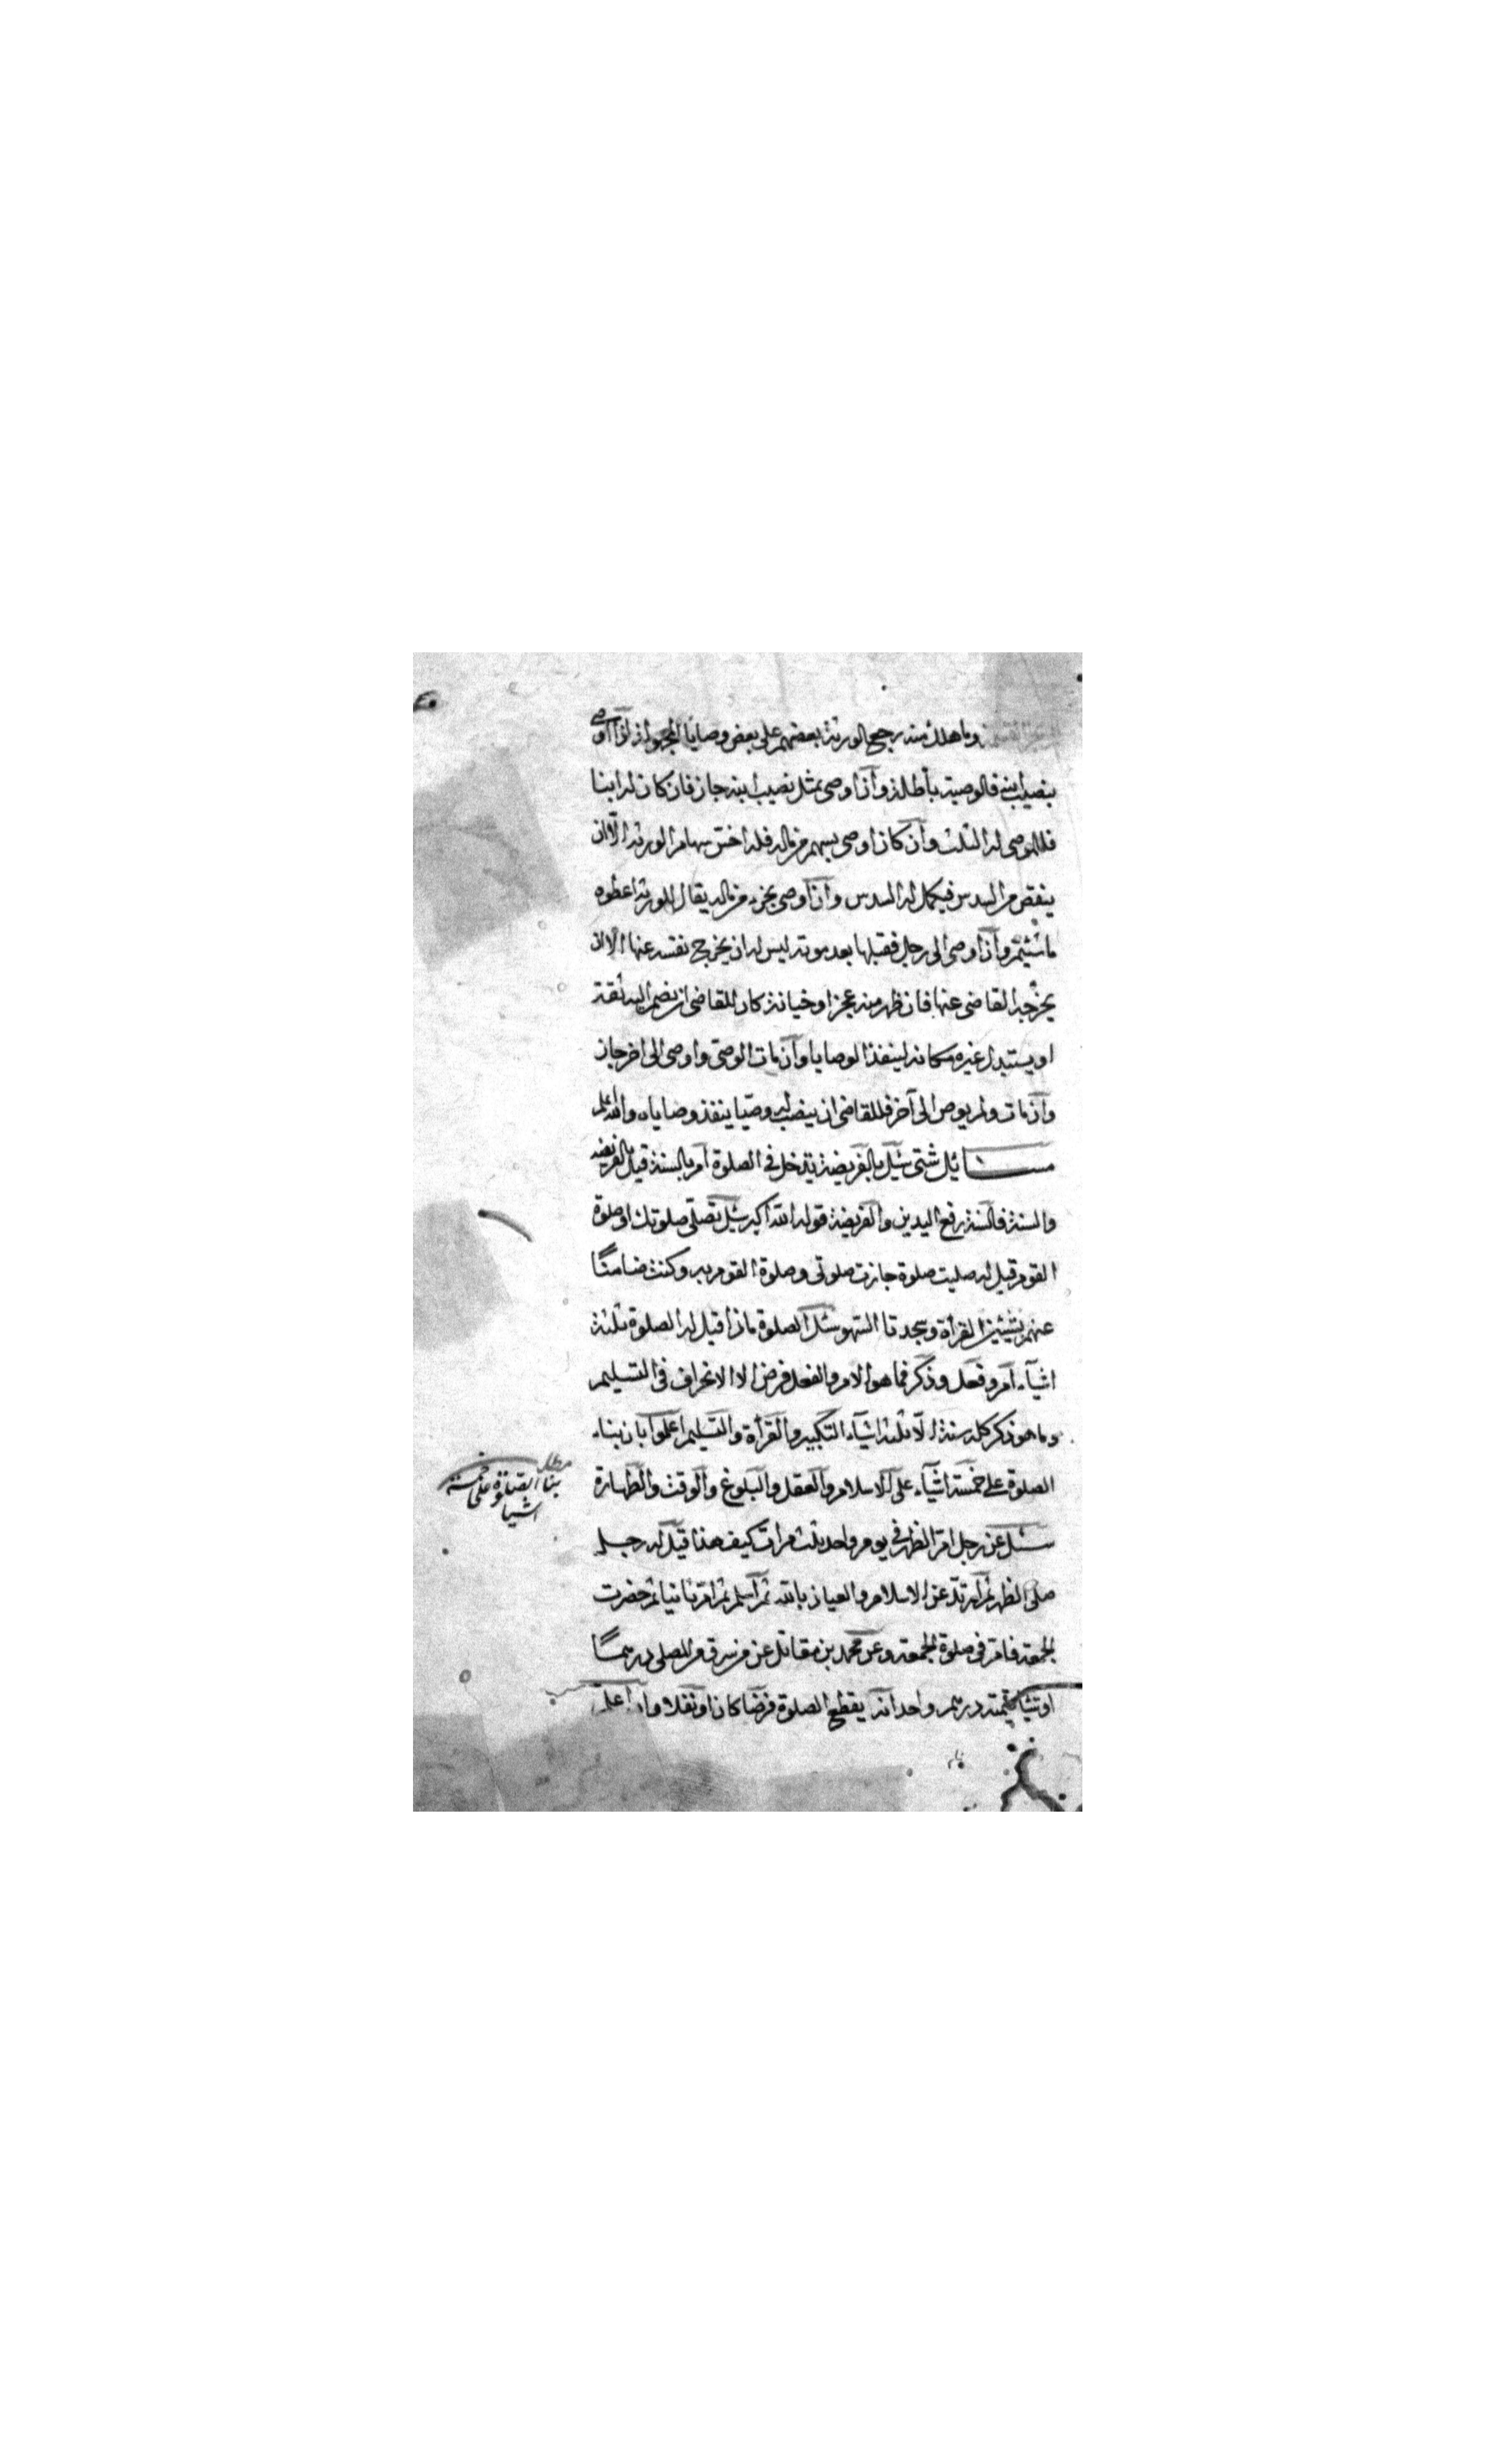 وما هلك منه يرجع الورثة بعضهم على بعض وصايا اوصى
بنصيب ابنه فالوصية باطلة وان اوصى بمثل نصيب ابنه جاز فان كان له ابنا
فللموصى له الثلث وان كان اوصى بسهم من ماله فله اخس سهام الورثة الا ان
ينقص من السدس فيكمل له السدس وان اوصى بجزء من ماله يقال للورثة اعطوه
ما شئتم وان اوصى الى رجل فقبلها بعد موته ليس له ان يخرج نفسه عنها الا ان
يخرجه القاضى عنها فان ظهر منه عجز او خيانة كان للقاضى ان يضم اليه ثقة
او يستبدل غيره مكانه لينفذ الوصايا وان مات الوصى واوصى الى اخر جاز
وان مات ولم يوص الى آخر فللقاضى ان ينصب له وصيا ينفذ وصاياه والله اعلم
مسائل شتى سئل بالفريضة تدخل فى الصلوة ام بالسنة قيل بالفريضة
والسنة فالسنة رفع اليدين والفريضة قوله الله اكبر سئل تصلى صلوتك او صلوة
القوم قيل له صليت صلوة جازت صلوتى وصلوة القوم به وكنت ضامنًا
عنهم بشيئين القرأة وسجدتا السهو سئل الصلوة ماذا قيل له الصلوة ثلثة
اشيآء امر وفعل وذكر فما هو الامر والفعل فرض الا الانحراف فى التسليم
وما هو ذكر كله سنة الا ثلثة اشيآء التكبير والقرأة والتسليم اعلموا بان بناء
الصلوة على خمسة اشيآء على الاسلام والعقل والبلوغ والوقت والطهارة
سئل عن رجل ام الظهر فى يوم واحد ثلث مرات كيف هذا قيل له رجل
صلى الظهر ثم ارتد عن الاسلام والعياذ بالله ثم اسلم ثم ام ثانيا ثم حضرت
الجمعة فام فى صلوة الجمعة وعن محمد بن مقاتل عن من سرق من المصلى درهمًا
او شيئا قيمته درهم واحد انه يقطع الصلوة فرضًا كان او نفلا والله اعلم
مطلب
بناء الصلوة على خمسة
اشياء